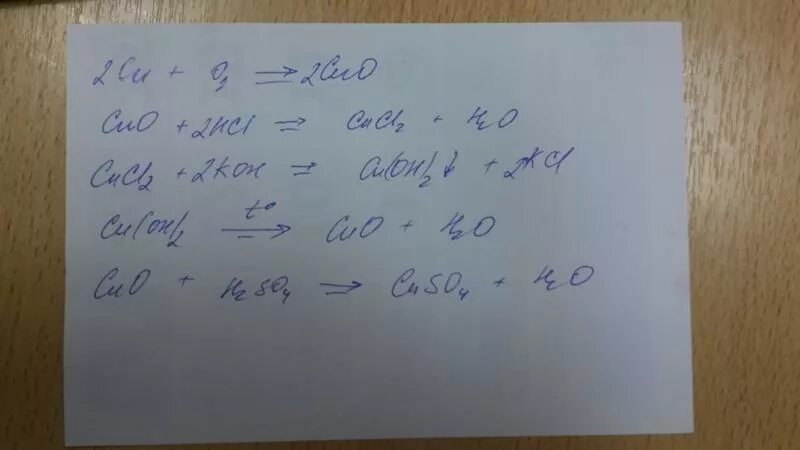 2Cu + O₂ => 2CuO
CuO + 2HCl => CuCl₂ + H₂O
CuCl₂ + 2KOH => Cu(OH)₂↓ + 2KCl
Cu(OH)₂ t° => CuO + H₂O
CuO + H₂SO₄ => CuSO₄ + H₂O